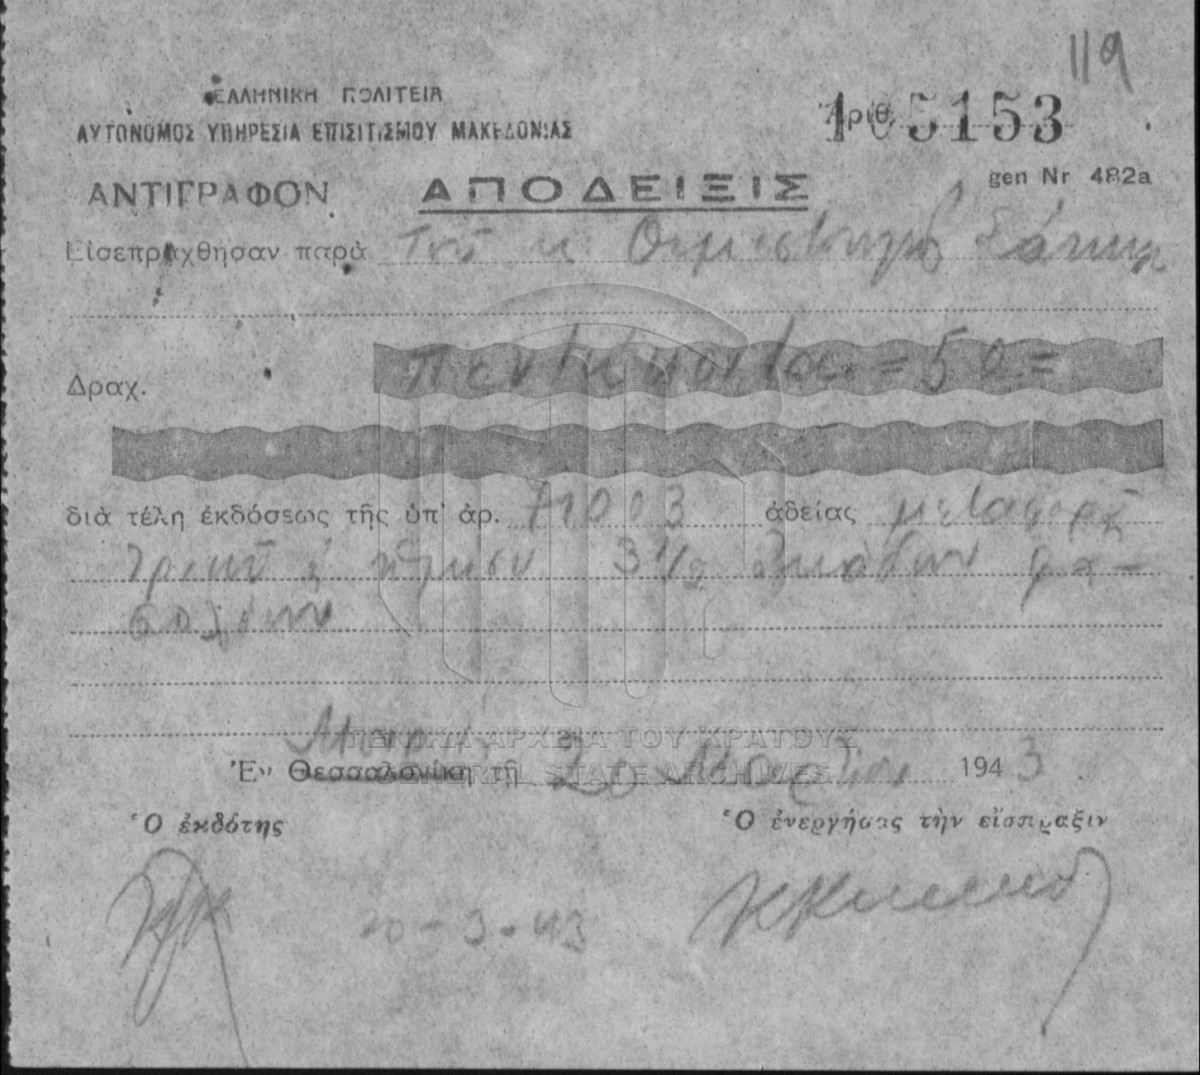 119
ΕΛΛΗΝΙΚΗ ΠΟΛΙΤΕΙΑ
ΑΥΤΟΝΟΜΟΣ ΥΠΗΡΕΣΙΑ ΕΠΙΣΙΤΙΣΜΟΥ ΜΑΚΕΔΟΝΙΑΣ
Ἀριθ. 105153
gen Nr 482a
ΑΝΤΙΓΡΑΦΟΝ ΑΠΟΔΕΙΞΙΣ
Εἰσεπράχθησαν παρὰ τοῦ κ.
Δραχ. πεντήκοντα = 50 =
διὰ τέλη ἐκδόσεως τῆς ὑπ' ἀρ. 71003 ἀδείας μεταφορᾶς
3 1/2 ὀκάδων φα-
σολίων
ΓΕΝΙΚΑ ΑΡΧΕΙΑ ΤΟΥ ΚΡΑΤΟΥΣ
Ἐν Θεσσαλονίκῃ τῇ 20 Μαρτίου 1943
GENERAL STATE ARCHIVES
Ὁ ἐκδότης Ὁ ἐνεργήσας τὴν εἴσπραξιν
20-3-43